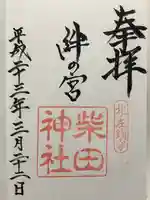 奉拝
絆の宮
柴田
神社
平成二十三年三月二十二日